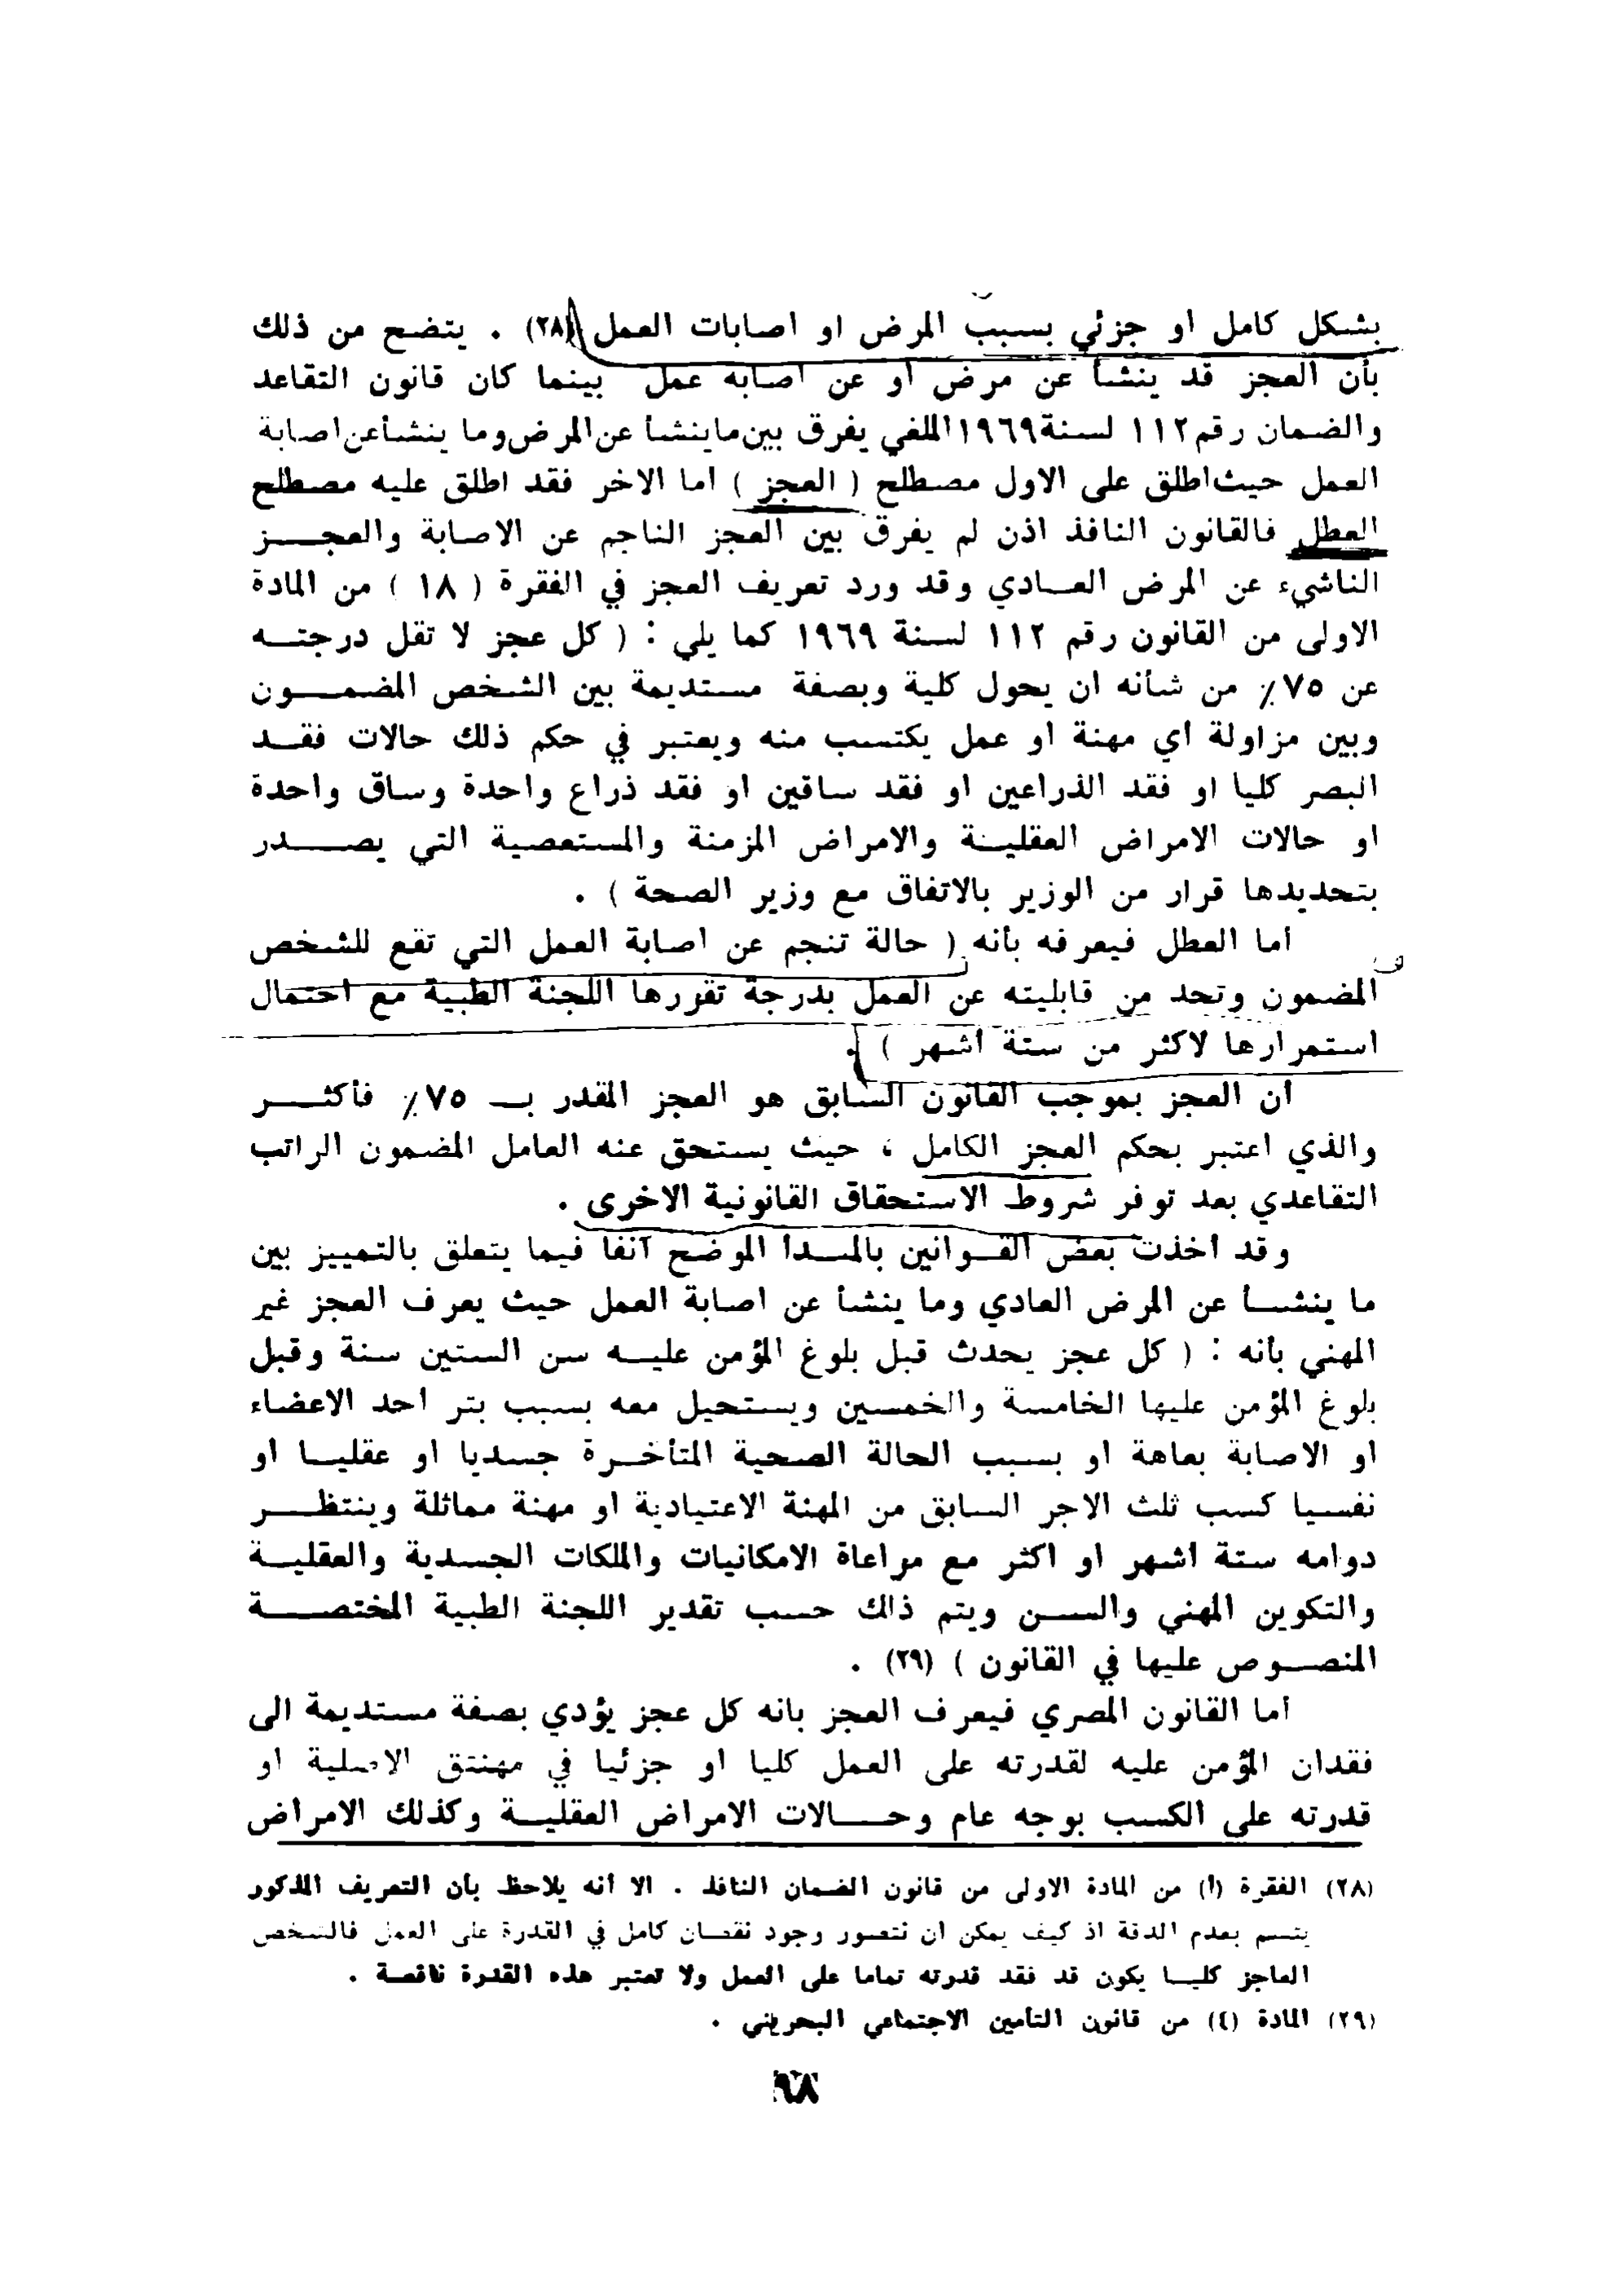 بشكل كامل او جزئي بسبب المرض او اصابات العمل (٢٨) . يتضح من ذلك
بأن العجز قد ينشأ عن مرض او عن اصابة عمل بينما كان قانون التقاعد
والضمان رقم ١١٢ لسنة ١٩٦٩ الملغي يفرق بين ما ينشأ عن المرض وما ينشأ عن اصابة
العمل حيث اطلق على الاول مصطلح ( العجز ) اما الاخر فقد اطلق عليه مصطلح
العطل فالقانون النافذ اذن لم يفرق بين العجز الناجم عن الاصابة والعجز
الناشيء عن المرض العادي وقد ورد تعريف العجز في الفقرة ( ١٨ ) من المادة
الاولى من القانون رقم ١١٢ لسنة ١٩٦٩ كما يلي : ( كل عجز لا تقل درجته
عن ٧٥٪ من شأنه ان يحول كلية وبصفة مستديمة بين الشخص المضمون
وبين مزاولة اي مهنة او عمل يكتسب منه ويعتبر في حكم ذلك حالات فقد
البصر كليا او فقد الذراعين او فقد ساقين او فقد ذراع واحدة وساق واحدة
او حالات الامراض العقلية والامراض المزمنة والمستعصية التي يصدر
بتحديدها قرار من الوزير بالاتفاق مع وزير الصحة ) .
أما العطل فيعرفه بأنه ( حالة تنجم عن اصابة العمل التي تقع للشخص
المضمون وتحد من قابليته عن العمل بدرجة تقررها اللجنة الطبية مع احتمال
استمرارها لاكثر من ستة أشهر ) .
ان العجز بموجب القانون السابق هو العجز المقدر بـ ٧٥٪ فأكثر
والذي اعتبر بحكم العجز الكامل ، حيث يستحق عنه العامل المضمون الراتب
التقاعدي بعد توفر شروط الاستحقاق القانونية الاخرى .
وقد أخذت بعض القوانين بالمبدأ الموضح آنفا فيما يتعلق بالتمييز بين
ما ينشأ عن المرض العادي وما ينشأ عن اصابة العمل حيث يعرف العجز غير
المهني بأنه : ( كل عجز يحدث قبل بلوغ المؤمن عليه سن الستين سنة وقبل
بلوغ المؤمن عليها الخامسة والخمسين ويستحيل معه بسبب بتر احد الاعضاء
او الاصابة بعاهة او بسبب الحالة الصحية المتأخرة جسديا او عقليا او
نفسيا كسب ثلث الاجر السابق من المهنة الاعتيادية او مهنة مماثلة وينتظر
دوامه ستة اشهر او اكثر مع مراعاة الامكانيات والملكات الجسدية والعقلية
والتكوين المهني والسن ويتم ذلك حسب تقدير اللجنة الطبية المختصة
المنصوص عليها في القانون ) (٢٩) .
أما القانون المصري فيعرف العجز بانه كل عجز يؤدي بصفة مستديمة الى
فقدان المؤمن عليه لقدرته على العمل كليا او جزئيا في مهنتق الاصلية او
قدرته على الكسب بوجه عام وحالات الامراض العقلية وكذلك الامراض
(٢٨) الفقرة (أ) من المادة الاولى من قانون الضمان النافذ . الا أنه يلاحظ بأن التعريف المذكور
يتسم بعدم الدقة اذ كيف يمكن ان نتصور وجود نقصان كامل في القدرة على العمل فالشخص
العاجز كليا يكون قد فقد قدرته تماما على العمل ولا تعتبر هذه القدرة ناقصة .
(٢٩) المادة (٤) من قانون التأمين الاجتماعي البحريني .
٩٨